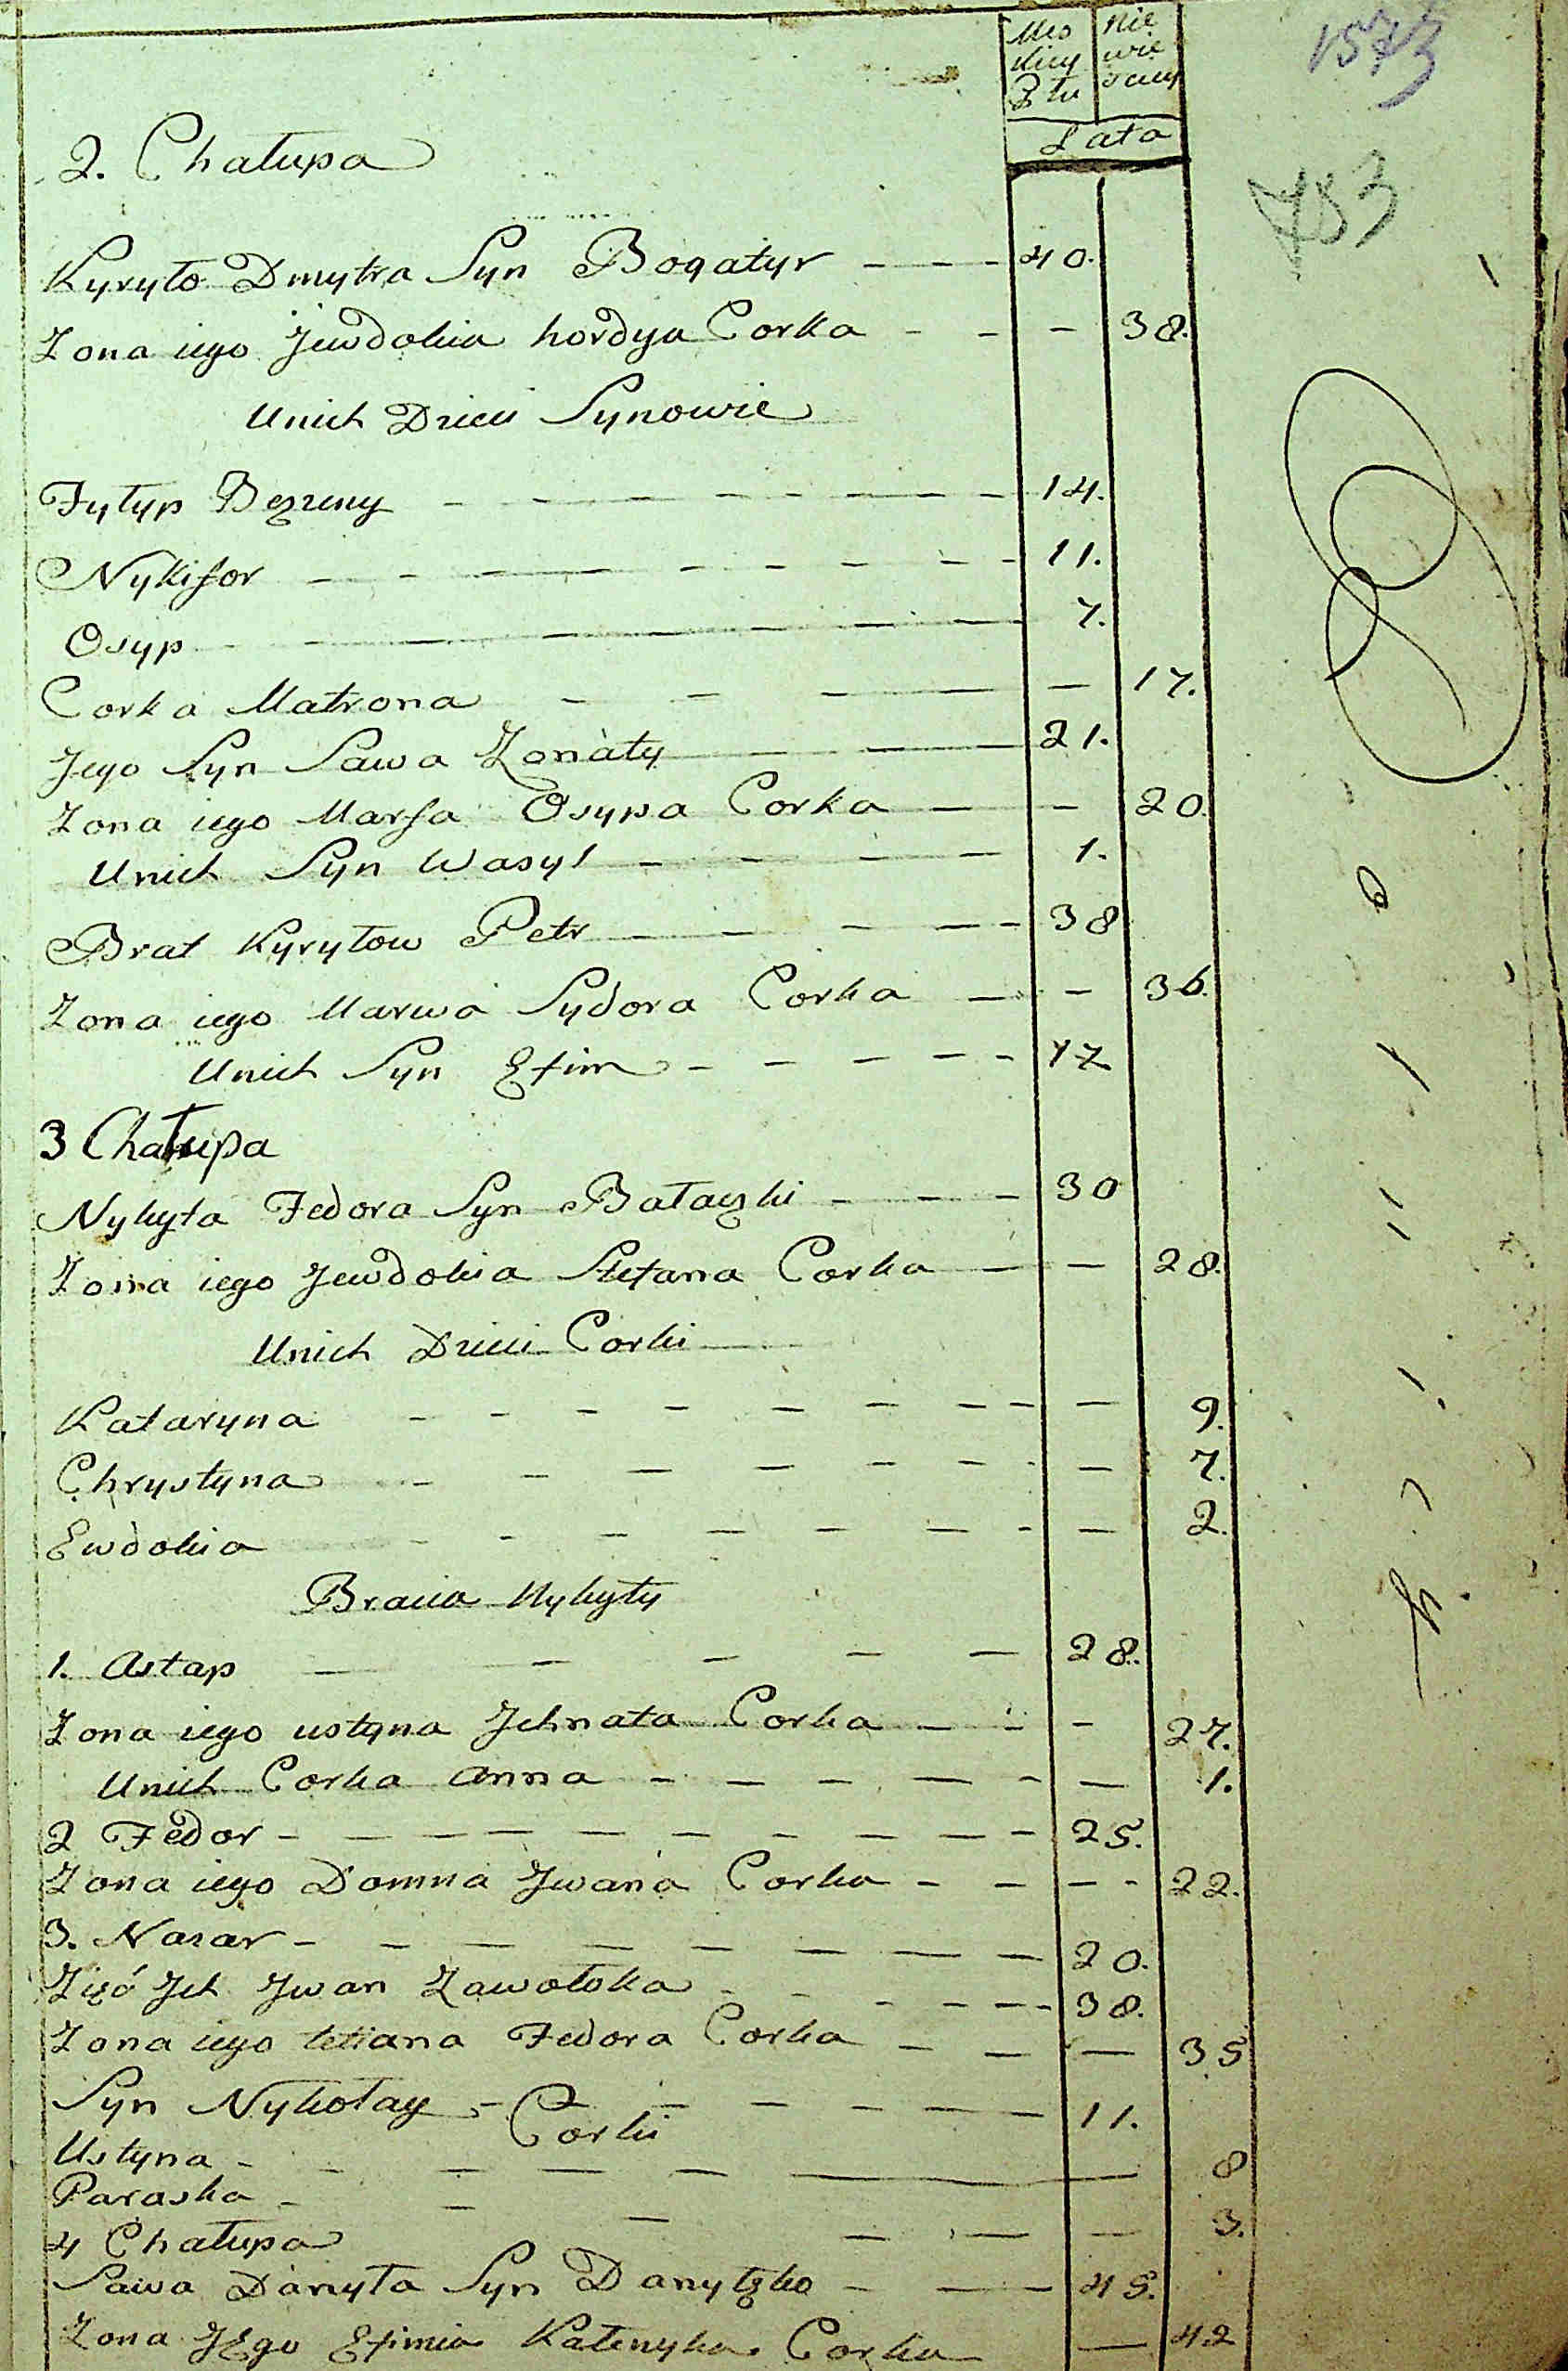 Męs Nie
kiey wie
Płu sciey
Lata
1573
783
2. Chałupa
Kyryło Dmytra Syn Bogatyr — — — 40.
Zona iego Jewdokia hordya Corka — — — 38.
Unich Dzieci Synowie
Fyłyp Bezreny — — — 14.
Nykifor — — — 11.
Osyp — — — 7.
Corka Matrona — — — 17.
Jego Syn Sawa Zonaty — — — 21.
Zona iego Marfa Osypa Corka — — 20.
Unich Syn Wasyl — — — 1.
Brat Kyryłow Petr — — — 38
Zona iego Marwa Sydora Corka — — 36.
Unich Syn Efim — — — 17
3 Chałupa
Nykyta Fedora Syn Bałaczki — — — 30
Zona iego Jewdokia Stefana Corka — — 28.
Unich Dzieci Corki
Kataryna — — — 9.
Chrystyna — — — 7.
Ewdokia — — — 2.
Bracia Nykyty
1. Astap — — — 28.
Zona iego ustyna Jehnata Corka — — — 27.
Unich Corka Anna — — — 1.
2 Fedor — — — 25.
Zona iego Domna Jwana Corka — — — 22.
3. Nazar — — — 20.
Zięć Jch Jwan Zawołoka — — — 38.
Zona iego tetiana Fedora Corka — — — 35
Syn Nykołay — — — 11.
Corki
Ustyna — — — 8
Paraska — — — 3.
4 Chałupa
Sawa Danyła Syn Danyłzko — — — 45.
Zona JEgo Efimia Katenyka Corka — 42